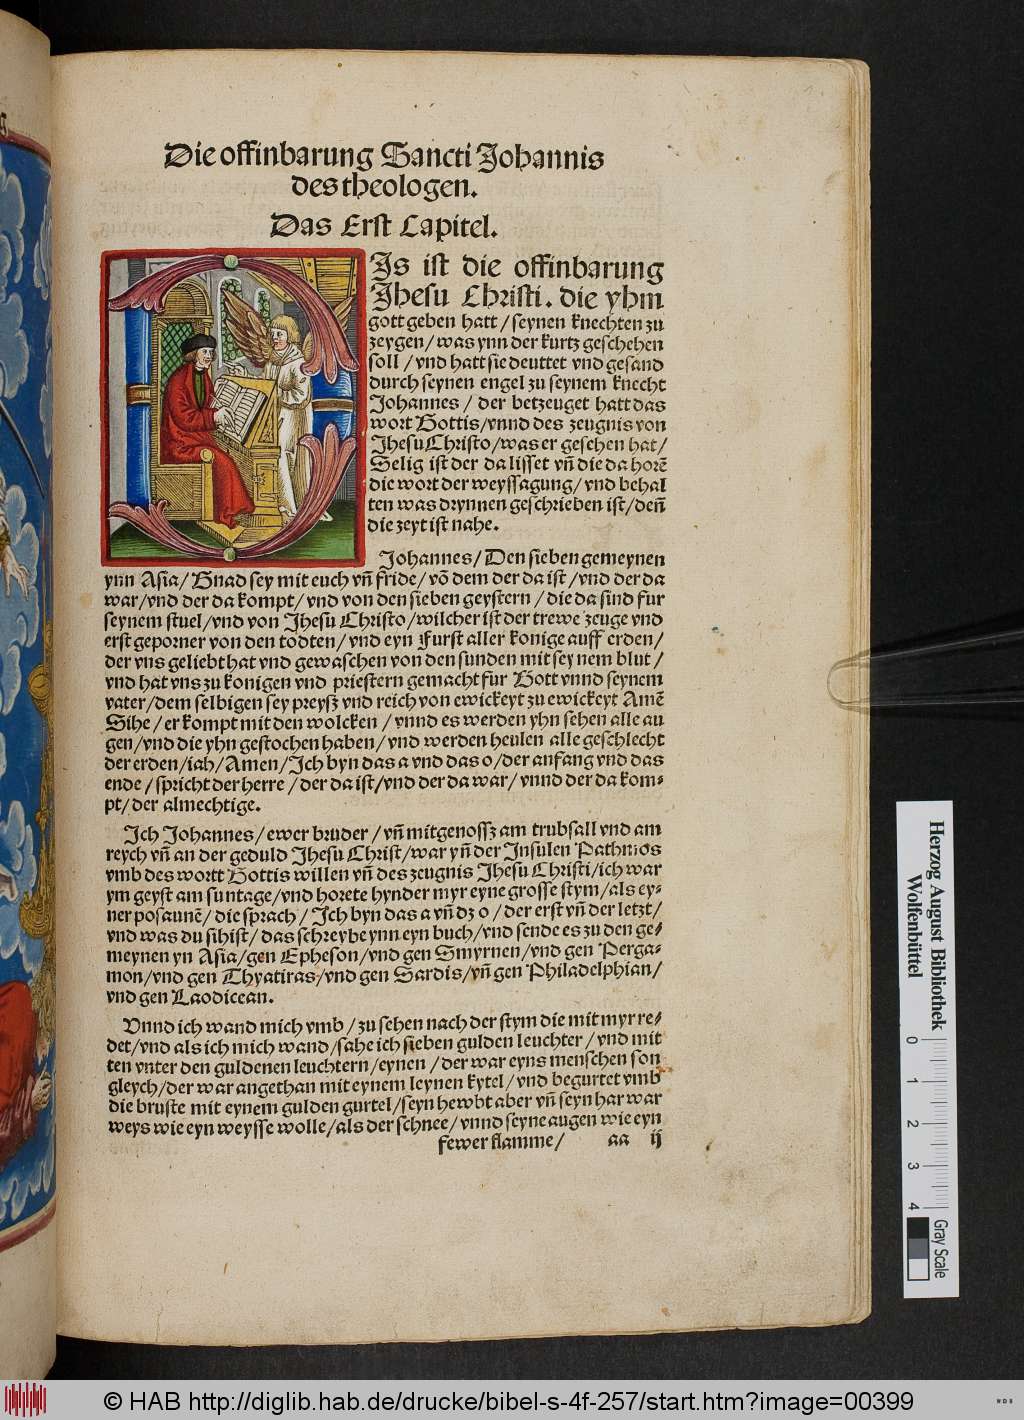 Die offinbarung Sancti Johannis
des theologen.
Das Erst Capitel.
Is ist die offinbarung
Jhesu Christi. die yhm
gott geben hatt / seynen knechten zu
zeygen / was ynn der kurtz geschehen
soll / vnd hatt sie deuttet vnd gesand
durch seynen engel zu seynem knecht
Johannes / der betzeuget hatt das
wort Gottis/vnnd des zeugnis von
Jhesu Christo/was er gesehen hat/
Selig ist der da lisset vn̄ die da horē
die wort der weyssagung/ vnd behal
ten was drynnen geschrieben ist/ deñ
die zeyt ist nahe.
Johannes/ Den sieben gemeynen
ynn Asia/ Gnad sey mit euch vn̄ fride/ vō dem der da ist /vnd der da
war/vnd der da kompt/ vnd von den sieben geystern / die da sind fur
seynem stuel/vnd von Jhesu Christo/wilcher ist der trewe zeuge vnd
erst geporner von den todten/ vnd eyn Furst aller konige auff erden/
der vns geliebt hat vnd gewaschen von den sunden mit sey nem blut /
vnd hat vns zu konigen vnd priestern gemacht fur Gott vnnd seynem
vater/dem selbigen sey preysz vnd reich von ewickeyt zu ewickeyt Amē
Sihe/ er kompt mit den wolcken / vnnd es werden yhn sehen alle au
gen/vnd die yhn gestochen haben/ vnd werden heulen alle geschlecht
der erden/iah/Amen/Ich byn das a vnd das o/der anfang vnd das
ende / spricht der herre / der da ist/vnd der da war/ vnnd der da kom⸗
pt/ der almechtige.
Ich Johannes/ewer bruder /vn̄ mitgenossz am trubsall vnd am
reych vn̄ an der geduld Jhesu Christ/war yn̄ der Insulen Pathmos
vmb des wortt Gottis willen vn̄ des zeugnis Jhesu Christi/ich war
ym geyst am suntage/vnd horete hynder myr eyne grosse stym/als ey⸗
ner posaunē/ die sprach/ Ich byn das a vn̄ dz o /der erst vn̄ der letzt/
vnd was du sihist/ das schreybe ynn eyn buch/vnd sende es zu den ge⸗
meynen yn Asia/gen Epheson/vnd gen Smyrnen/vnd gen Perga⸗
mon/vnd gen Thyatiras/vnd gen Sardis/vn̄ gen Philadelphian/
vnd gen Laodicean.
Vnnd ich wand mich vmb/ zu sehen nach der stym die mit myr re⸗
det/vnd als ich mich wand/sahe ich sieben gulden leuchter/ vnd mit
ten vnter den guldenen leuchtern/eynen / der war eyns menschen son
gleych/der war angethan mit eynem leynen kytel/ vnd begurtet vmb
die bruste mit eynem gulden gurtel/seyn hewbt aber vn̄ seyn har war
weys wie eyn weysse wolle/als der schnee/ vnnd seyne augen wie eyn
fewer flamme/ aa ij
Herzog August Bibliothek
Wolfenbüttel
0 1 2 3 4
Gray Scale
© HAB http://diglib.hab.de/drucke/bibel-s-4f-257/start.htm?image=00399
WDB